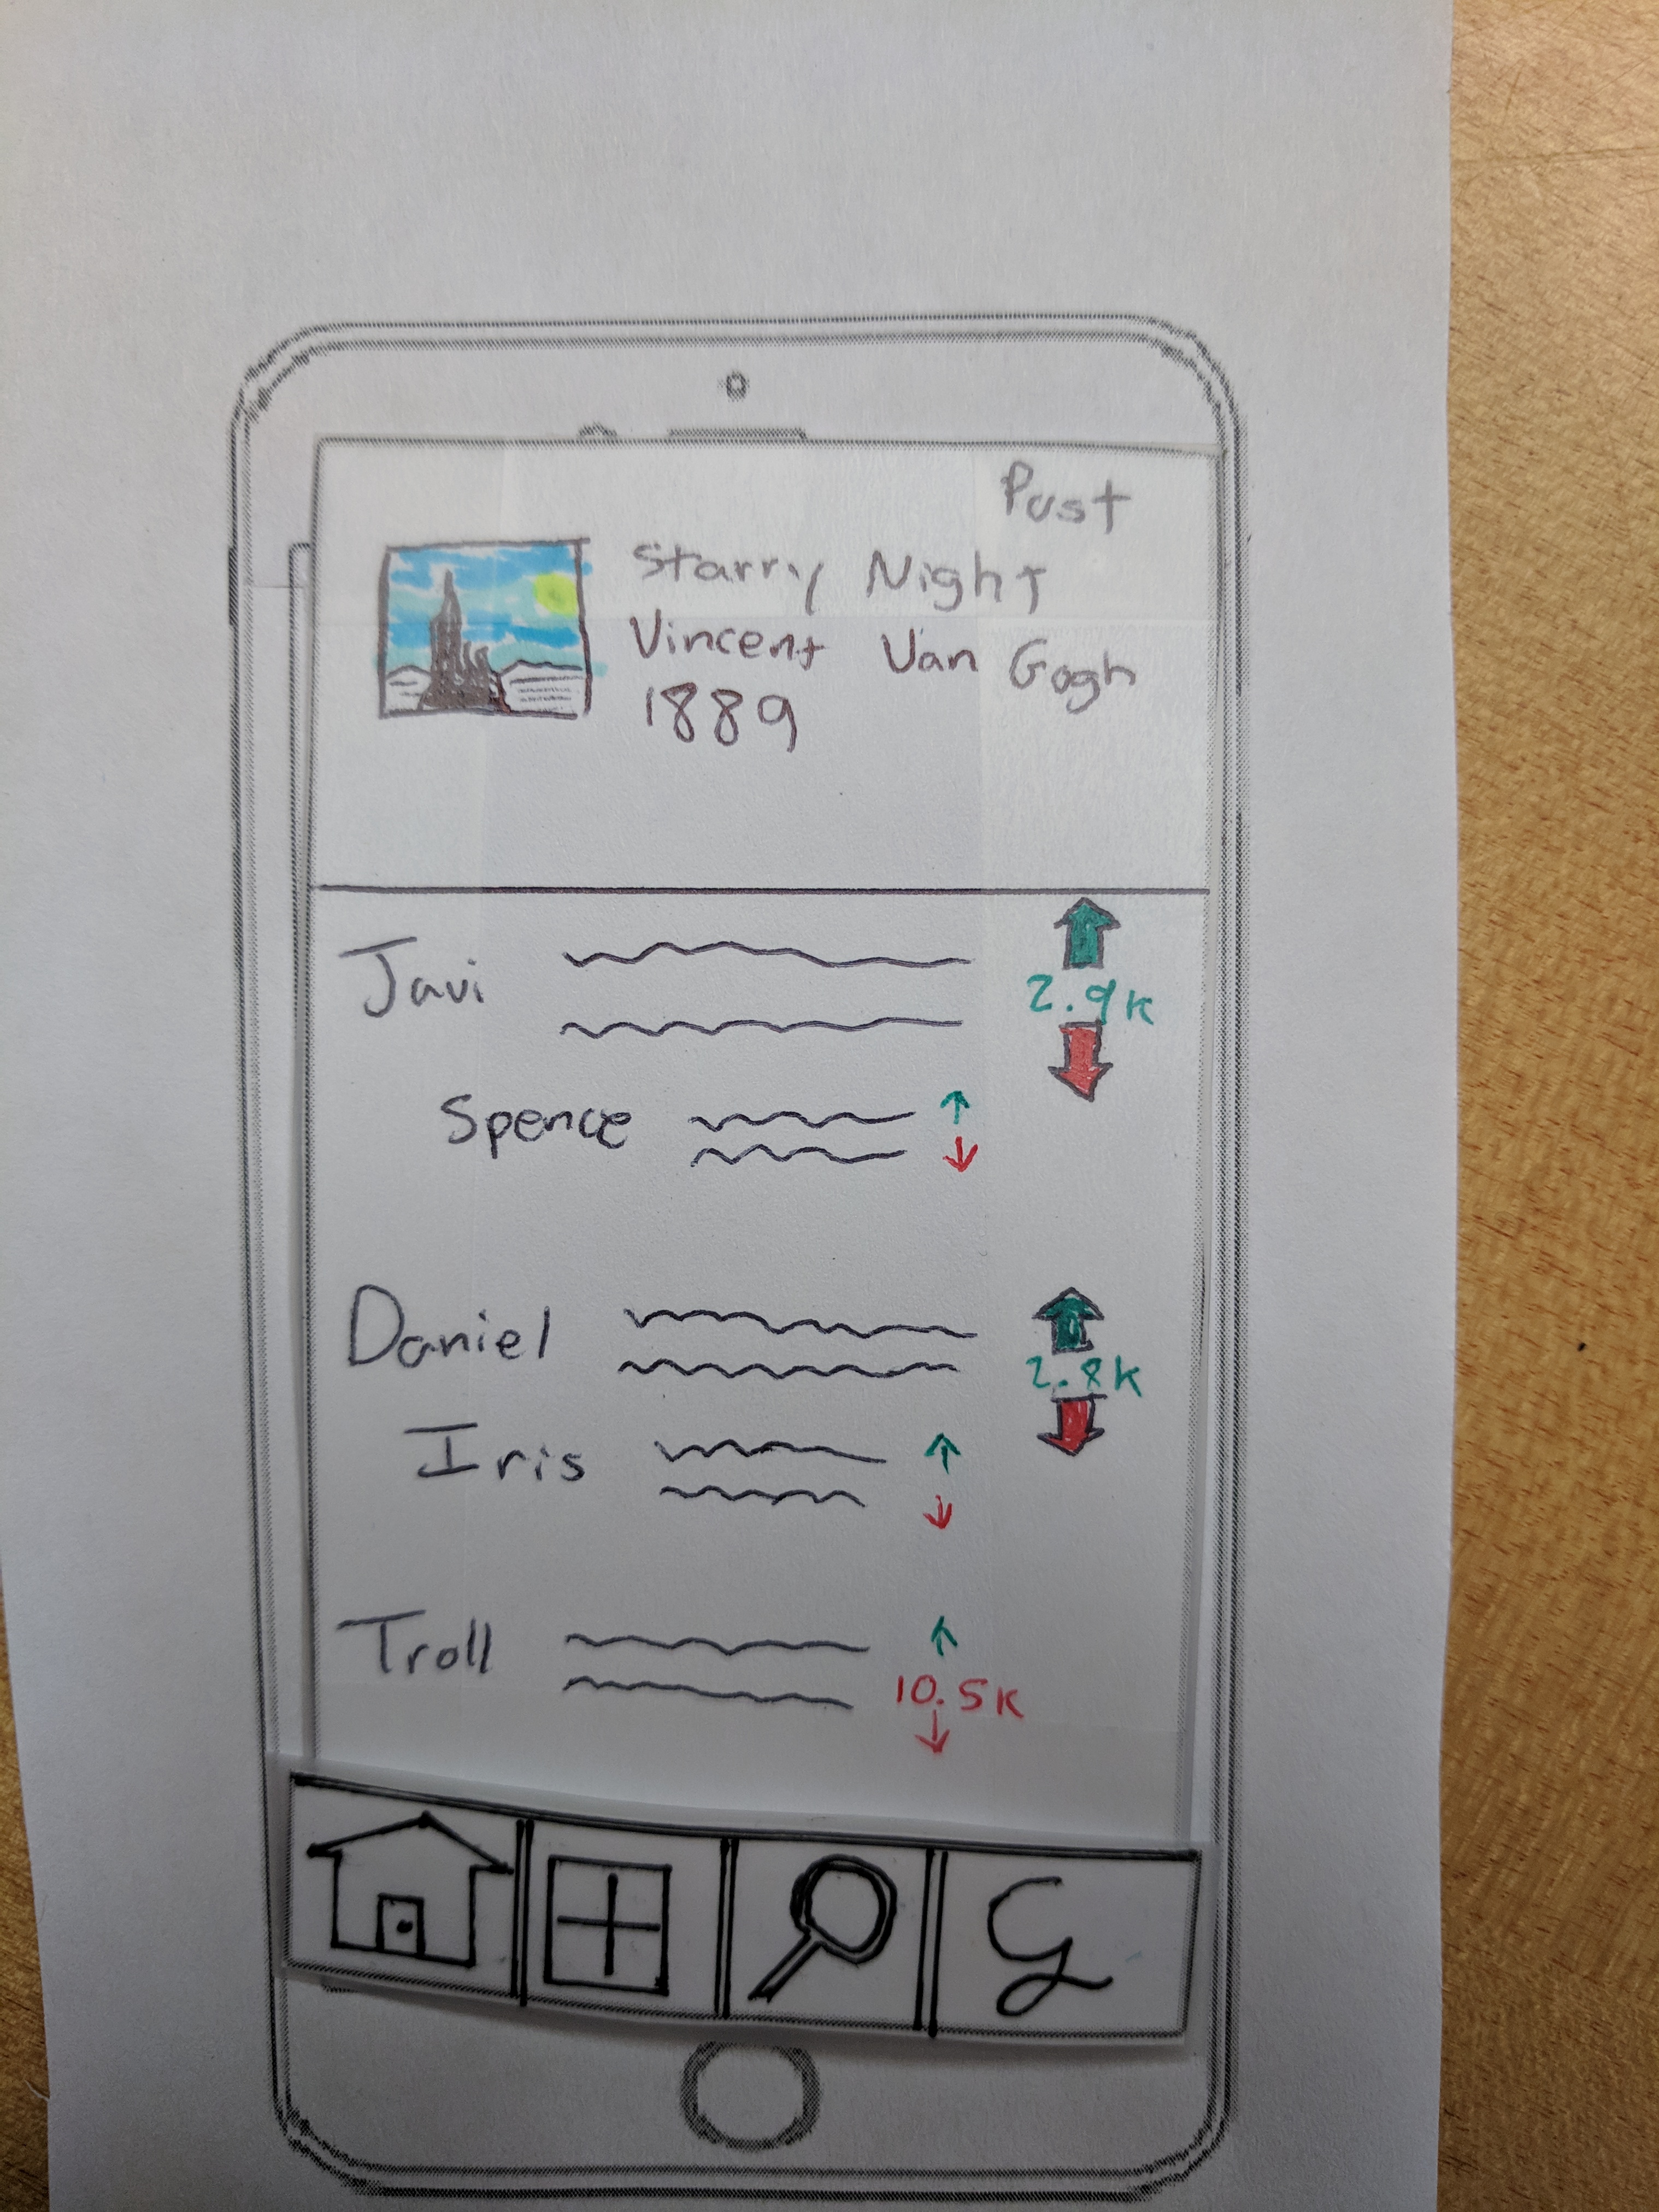 Post
Starry Night
Vincent Van Gogh
1889
Javi
2.9K
Spence
Daniel
2.8K
Iris
Troll
10.5K